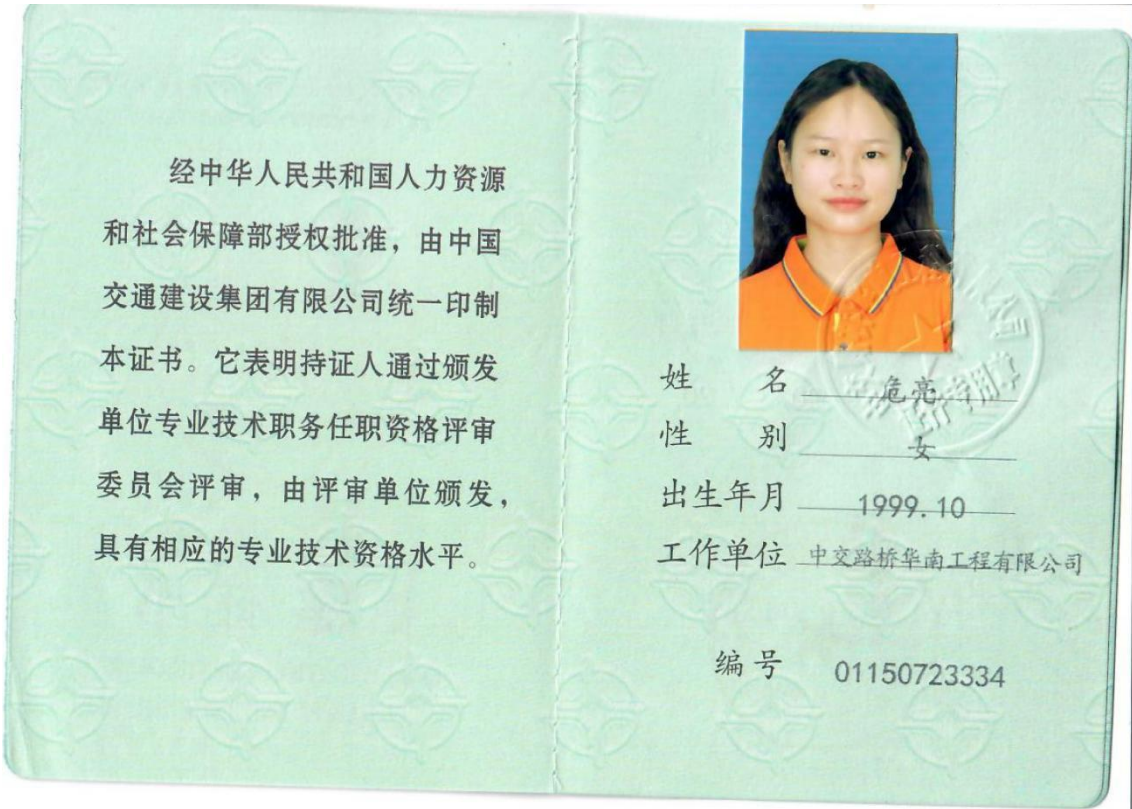 经中华人民共和国人力资源
和社会保障部授权批准，由中国
交通建设集团有限公司统一印制
本证书。它表明持证人通过颁发
单位专业技术职务任职资格评审
委员会评审，由评审单位颁发，
具有相应的专业技术资格水平。
姓 名 危亮
性 别 女
出生年月 1999.10
工作单位 中交路桥华南工程有限公司
编号 01150723334